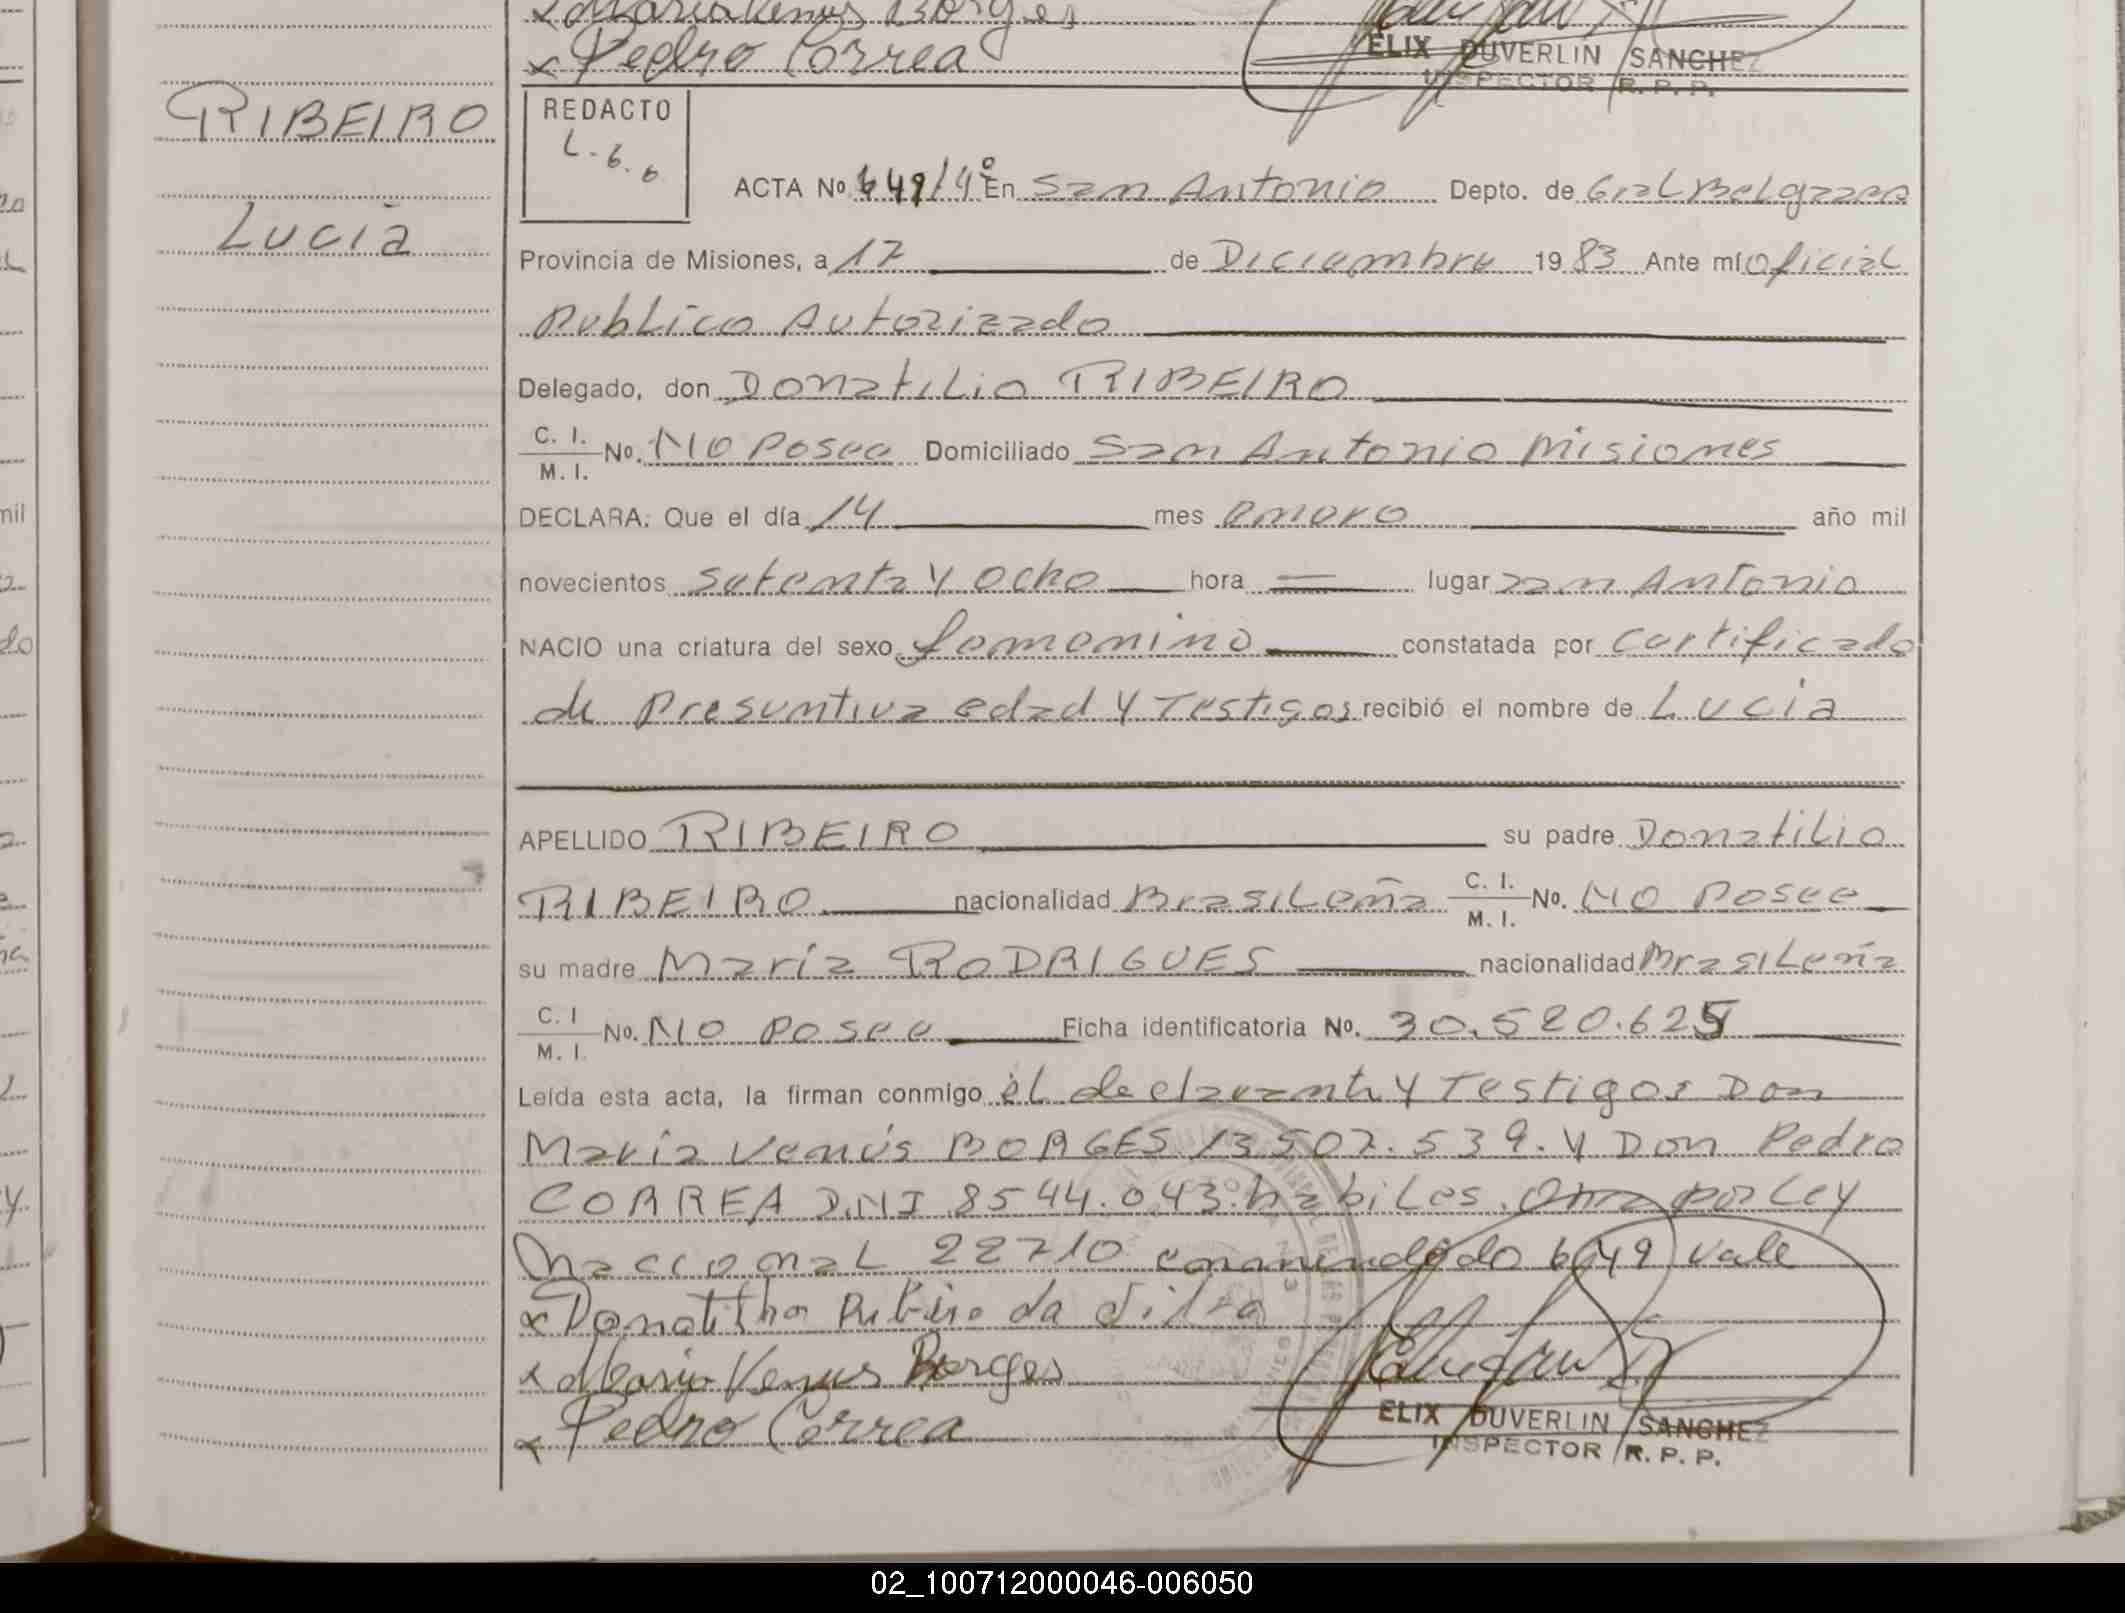 x Maria Venus Borges
x Pedro Correa
ELIX DUVERLIN SANCHEZ
INSPECTOR R. P. P.
RIBEIRO
Lucia
REDACTO
L.6.6
ACTA Nº 649/4º En San Antonio Depto. de Gral Belgrano
Provincia de Misiones, a 17 de Diciembre 1983 Ante mí oficial
Publico Autorizado
Delegado, don Donatilio RIBEIRO
C. I. / M. I. Nº. No Posee Domiciliado San Antonio Misiones
DECLARA: Que el día 14 mes enero año mil
novecientos setenta y ocho hora = lugar San Antonio
NACIO una criatura del sexo femenino constatada por certificado
de Presuntiva edad y Testigos recibió el nombre de Lucia
APELLIDO RIBEIRO su padre Donatilio
RIBEIRO nacionalidad Brasileña C. I. / M. I. Nº. No Posee
su madre María RODRIGUES nacionalidad Brasileña
C. I / M. I. Nº. No Posee Ficha identificatoria Nº. 30.520.625
Leída esta acta, la firman conmigo él declarante y Testigos Don
María Venús BORGES 13507.539. y Don Pedro
CORREA D.N.I 8544.043. habiles. por Ley
Naccional 22710 enmendado 649 vale
x Donatilho Ribeiro da Silva
x Maria Venus Borges
x Pedro Correa
ELIX DUVERLIN SANCHEZ
INSPECTOR R. P. P.
02_100712000046-006050